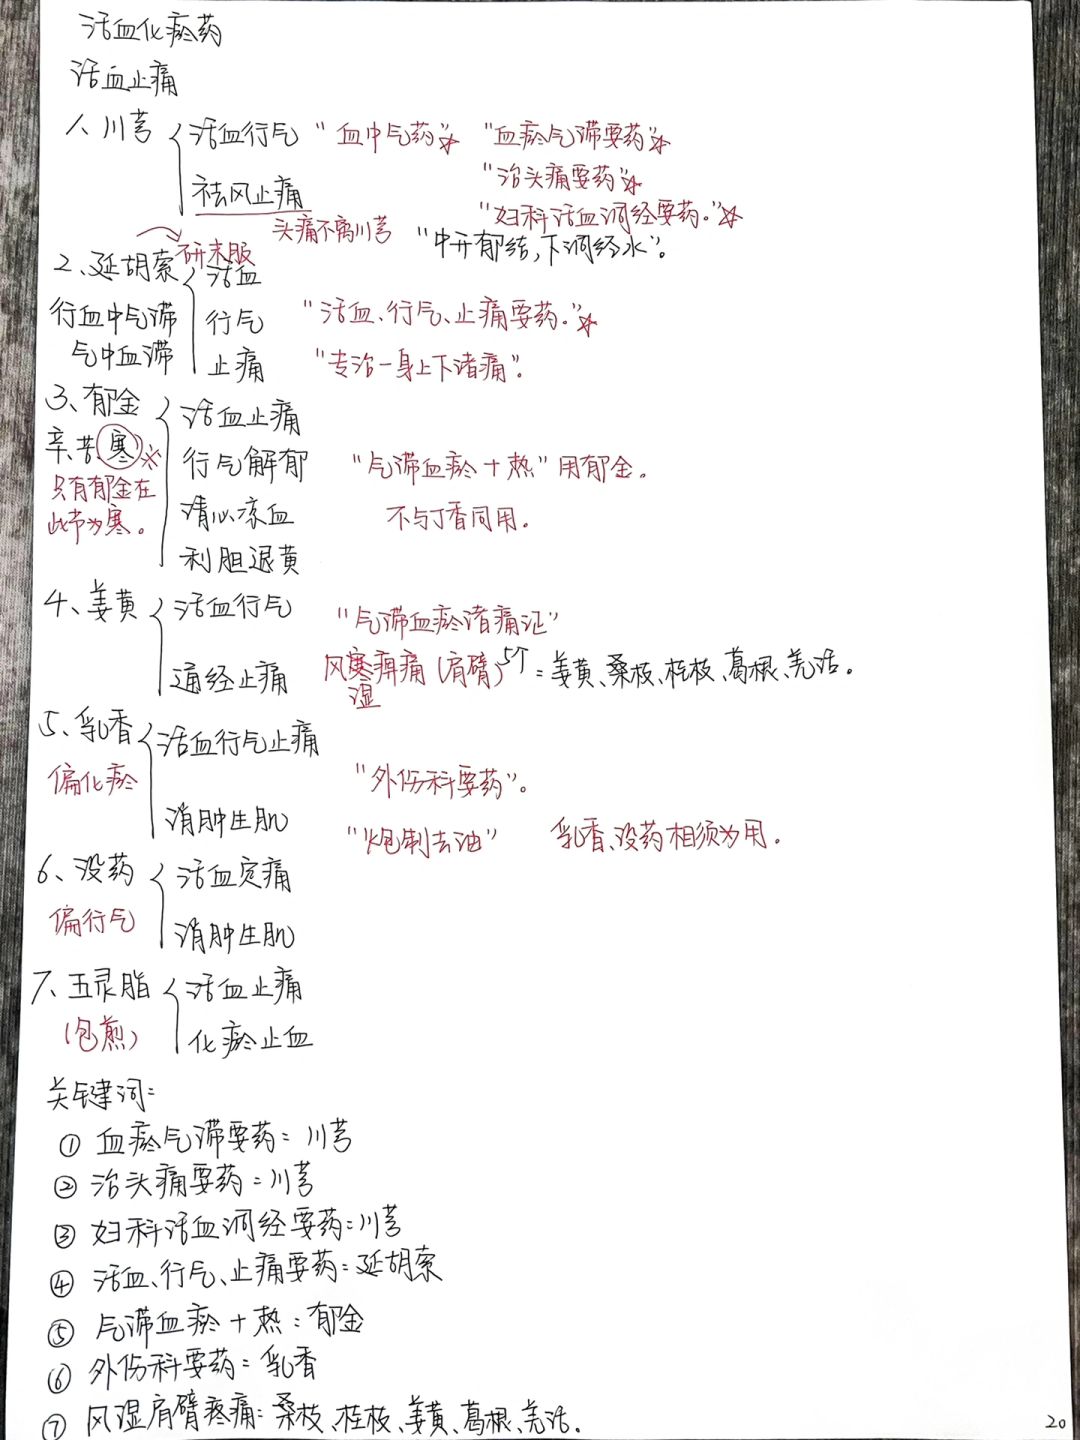 活血化瘀药
活血止痛
1、川芎 活血行气 "血中气药"☆ "血瘀气滞要药"☆
"治头痛要药"☆
祛风止痛 "妇科活血调经要药。"☆
头痛不离川芎 "中开郁结,下调经水"。
研末服
2、延胡索 活血
行血中气滞 行气 "活血、行气、止痛要药。"☆
气中血滞 止痛 "专治一身上下诸痛"。
3、郁金 活血止痛
辛、苦、寒※ 行气解郁 "气滞血瘀+热"用郁金。
只有郁金在
此节为寒。 清心凉血 不与丁香同用。
利胆退黄
4、姜黄 活血行气 "气滞血瘀诸痛证"
通经止痛 风寒痹痛(肩臂)5个:姜黄、桑枝、桂枝、葛根、羌活。
湿
5、乳香 活血行气止痛
偏化瘀 "外伤科要药"。
消肿生肌 "炮制去油" 乳香、没药相须为用。
6、没药 活血定痛
偏行气 消肿生肌
7、五灵脂 活血止痛
(包煎) 化瘀止血
关键词:
① 血瘀气滞要药:川芎
② 治头痛要药:川芎
③ 妇科活血调经要药:川芎
④ 活血、行气、止痛要药:延胡索
⑤ 气滞血瘀+热:郁金
⑥ 外伤科要药:乳香
⑦ 风湿肩臂疼痛:桑枝、桂枝、姜黄、葛根、羌活。
20